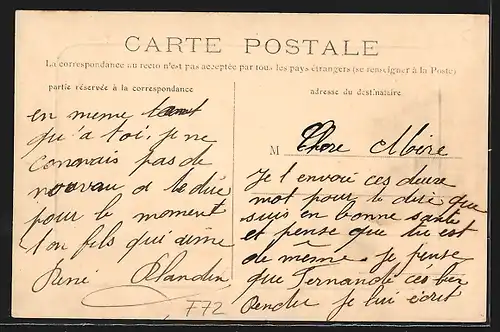 CARTE POSTALE
La correspondance au recto n'est pas acceptée par tous les pays étrangers (se renseigner à la Poste)
partie réservée à la correspondance
adresse du destinataire
M Chere Mère
Je t envoie ces deux
mot pour te dire que
suis en bonne santé
et pense que tu est
de même. je pense
que Fernande
je lui écrit
en meme
qu'a toi. je ne
conavais pas de
nouvau a te dire
pour le moment
ton fils qui aime
René Blandin
F72